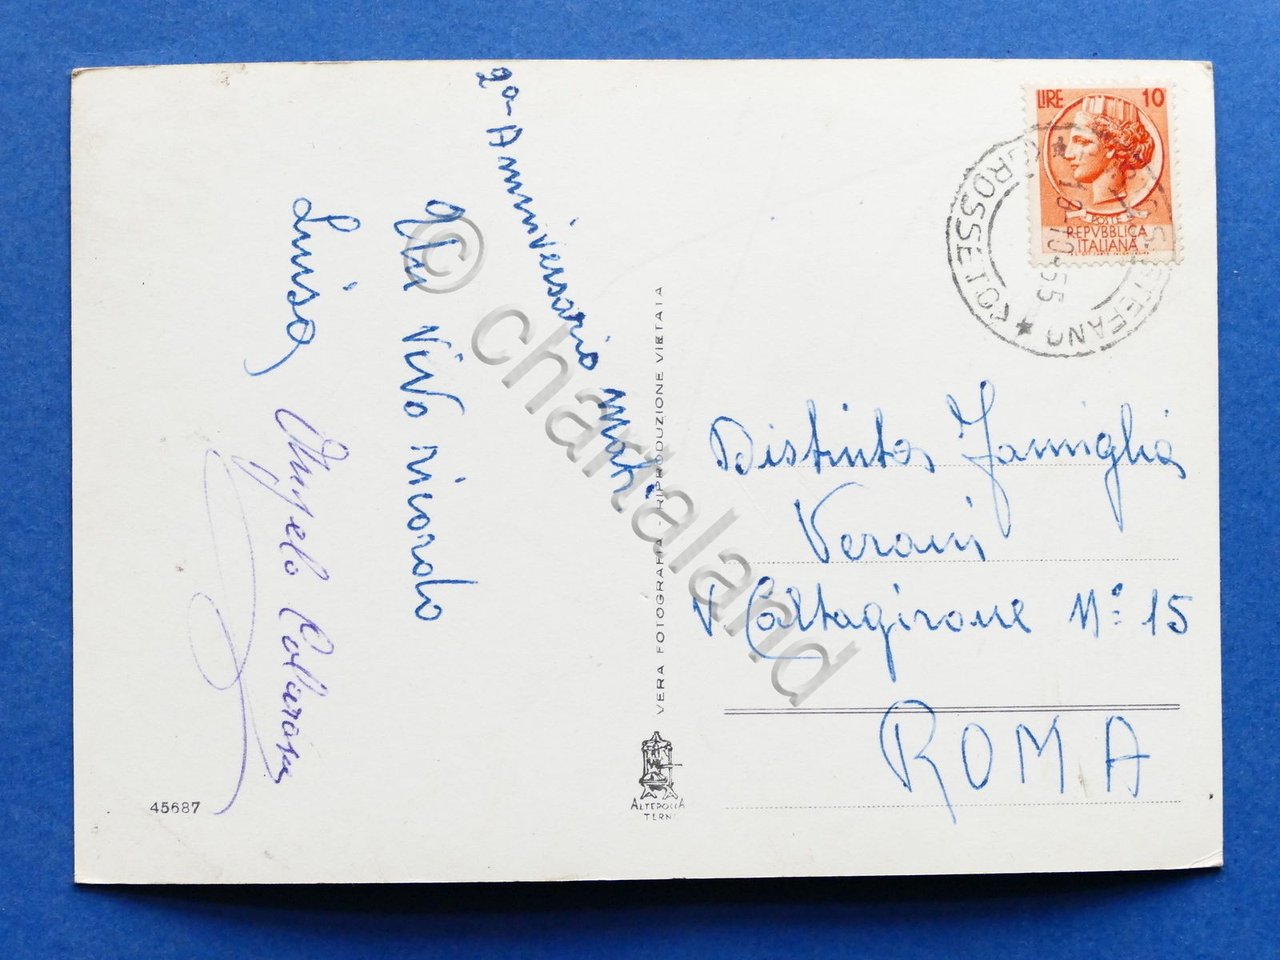 2a Anniversario matr.
vivo ricordo
Luisa
Angelo
45687
VERA FOTOGRAFIA - RIPRODUZIONE VIETATA
ALTEROCCA
TERNI
LIRE 10
POSTE
REPVBBLICA
ITALIANA
STEFANO * (GROSSETO) *
18-10-55
Distinta Famiglia
Verani
V. Caltagirone N° 15
ROMA
© chartaland